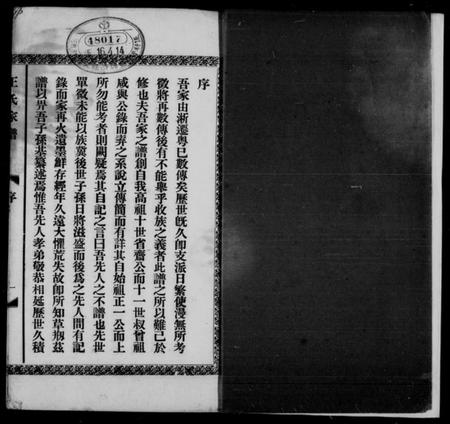 序
吾家由浙遷粤已數傳矣歷世旣久卽支派日繁使漫無所考
徵將再數傳後有不能舉乎收族之義者此譜之所以難已於
修也夫吾家之譜創自我高祖十世省齋公而十一世叔曾祖
咸與公錄而弆之系說立傳簡而有詳其自始祖正一公而上
所勿能考者則闕疑焉其自記之言曰吾先人之不譜也先世
單微未能以族冀後世子孫日將滋盛而後爲之先人間有記
錄而家再火遺墨鮮存經年久遠大懼荒失故卽所知草剏茲
譜以畀吾子孫其纂述焉惟吾先人孝弟敬恭相延歷世久積
王氏家譜
序
一
48017
16.4.14